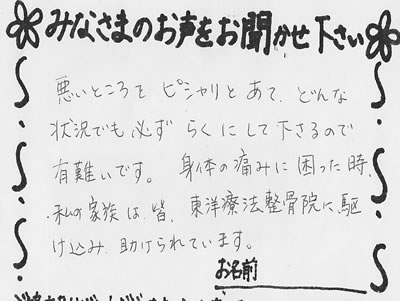 みなさまのお声をお聞かせ下さい
悪いところを ピシャリと あて、どんな
状況でも必ず らくにして下さるので
有難いです。 身体の痛みに 困った時、
私の家族は 皆、東洋療法整骨院に駆
け込み 助けられています。
お名前